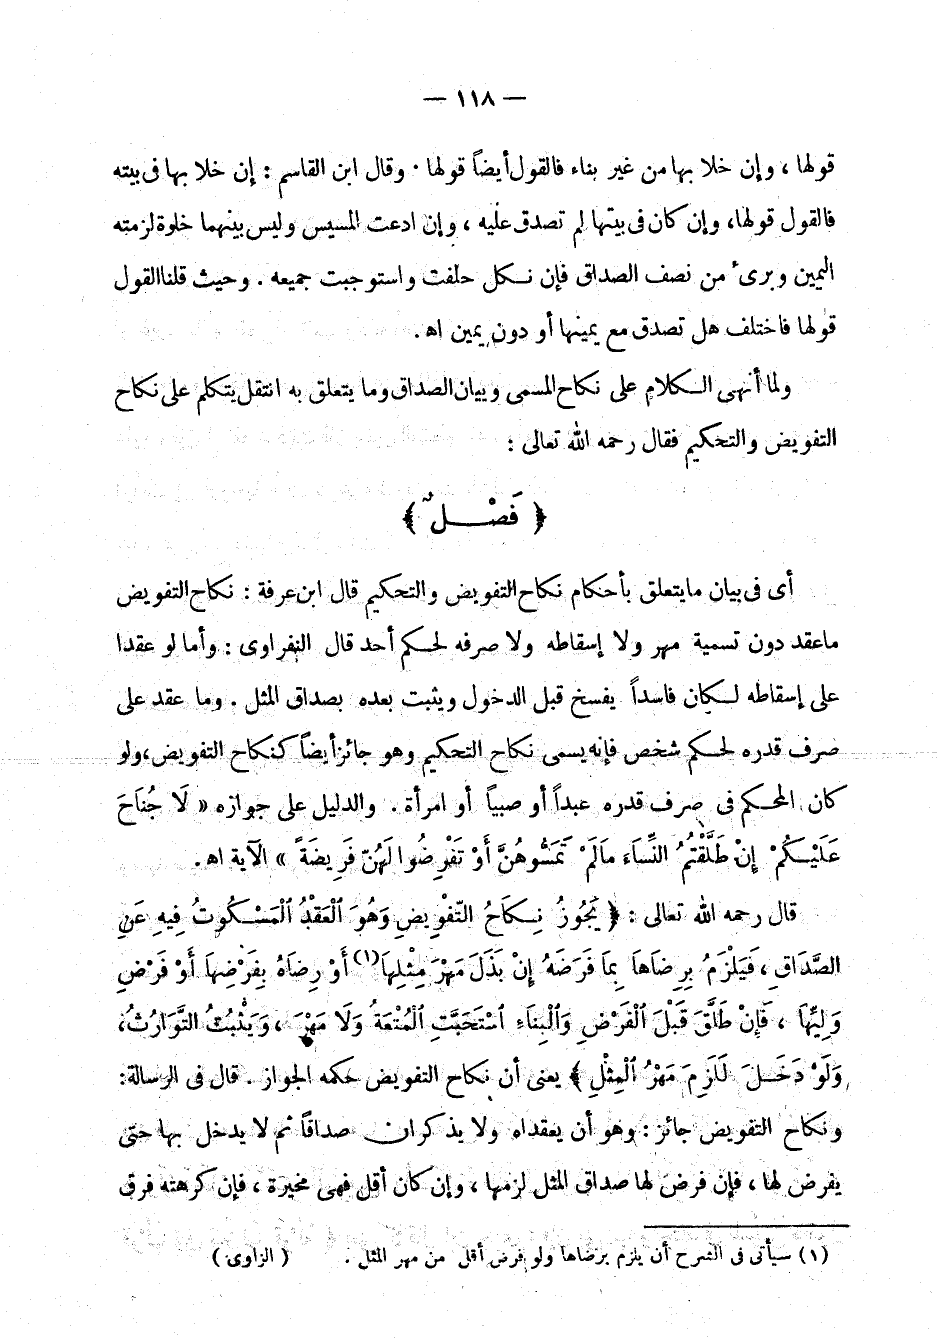 — ١١٨ —
قولها ، وإن خلا بها من غير بناء فالقول أيضاً قولها . وقال ابن القاسم : إن خلا بها فى بيته
فالقول قولها، وإن كان فى بيتها لم تصدق عليه ، وإن ادعت المسيس وليس بينهما خلوة لزمته
اليمين وبرىء من نصف الصداق فإن نـكل حلفت واستوجبت جميعه . وحيث قلنا القول
قولها فاختلف هل تصدق مع يمينها أو دون يمين اه .
ولما أنهى الـكلام على نكاح المسمى وبيان الصداق وما يتعلق به انتقل يتكلم على نكاح
التفويض والتحكيم فقال رحمه الله تعالى :
﴿ فَصْـــلٌ ﴾
أى فى بيان ما يتعلق بأحكام نكاح التفويض والتحكيم قال ابن عرفة : نكاح التفويض
ما عقد دون تسمية مهر ولا إسقاطه ولا صرفه لحـكم أحد قال النفراوى : وأما لو عقدا
على إسقاطه لـكان فاسداً يفسخ قبل الدخول ويثبت بعده بصداق المثل . وما عقد على
صرف قدره لحـكم شخص فإنه يسمى نكاح التحكيم وهو جائز أيضاً كنكاح التفويض ، ولو
كان المحـكم فى صرف قدره عبداً أو صبياً أو امرأة . والدليل على جوازه « لَا جُنَاحَ
عَلَيْـكُمْ إِنْ طَلَّقْتُمُ النِّسَاءَ مَالَمْ تَمَسُّوهُنَّ أَوْ تَفْرِضُوا لَهُنَّ فَرِيضَةً » الآية اه .
قال رحمه الله تعالى : ﴿ يَجُوزُ نِـكَاحُ التَّفْوِيضِ وَهُوَ الْعَقْدُ الْمَسْـكُوتُ فِيهِ عَنِ
الصَّدَاقِ ، فَيَلْزَمُ بِرِضَاهَا بِمَا فَرَضَهُ إِنْ بَذَلَ مَهْرَ مِثْلِهَا (١) أَوْ رِضَاهُ بِفَرْضِهَا أَوْ فَرْضِ
وَلِيِّهَا ، فَإِنْ طَلَّقَ قَبْلَ الْفَرْضِ وَالْبِنَاءِ اسْتَحَبَّتِ الْمُتْعَةُ وَلَا مَهْرَ ، وَيَثْبُتُ التَّوَارُثُ ،
وَلَوْ دَخَـلَ لَزِمَ مَهْرُ الْمِثْلِ ﴾ يعنى أن نكاح التفويض حكمه الجواز . قال فى الرسالة :
ونكاح التفويض جائز : وهو أن يعقداه ولا يذكران صداقاً ثم لا يدخل بها حتى
يفرض لها ، فإن فرض لها صداق المثل لزمها ، وإن كان أقل فهى مخيرة ، فإن كرهته فرق
(١) سيأتى فى الشرح أن يلزم برضاها ولو فرض أقل من مهر المثل . ( الزاوى )